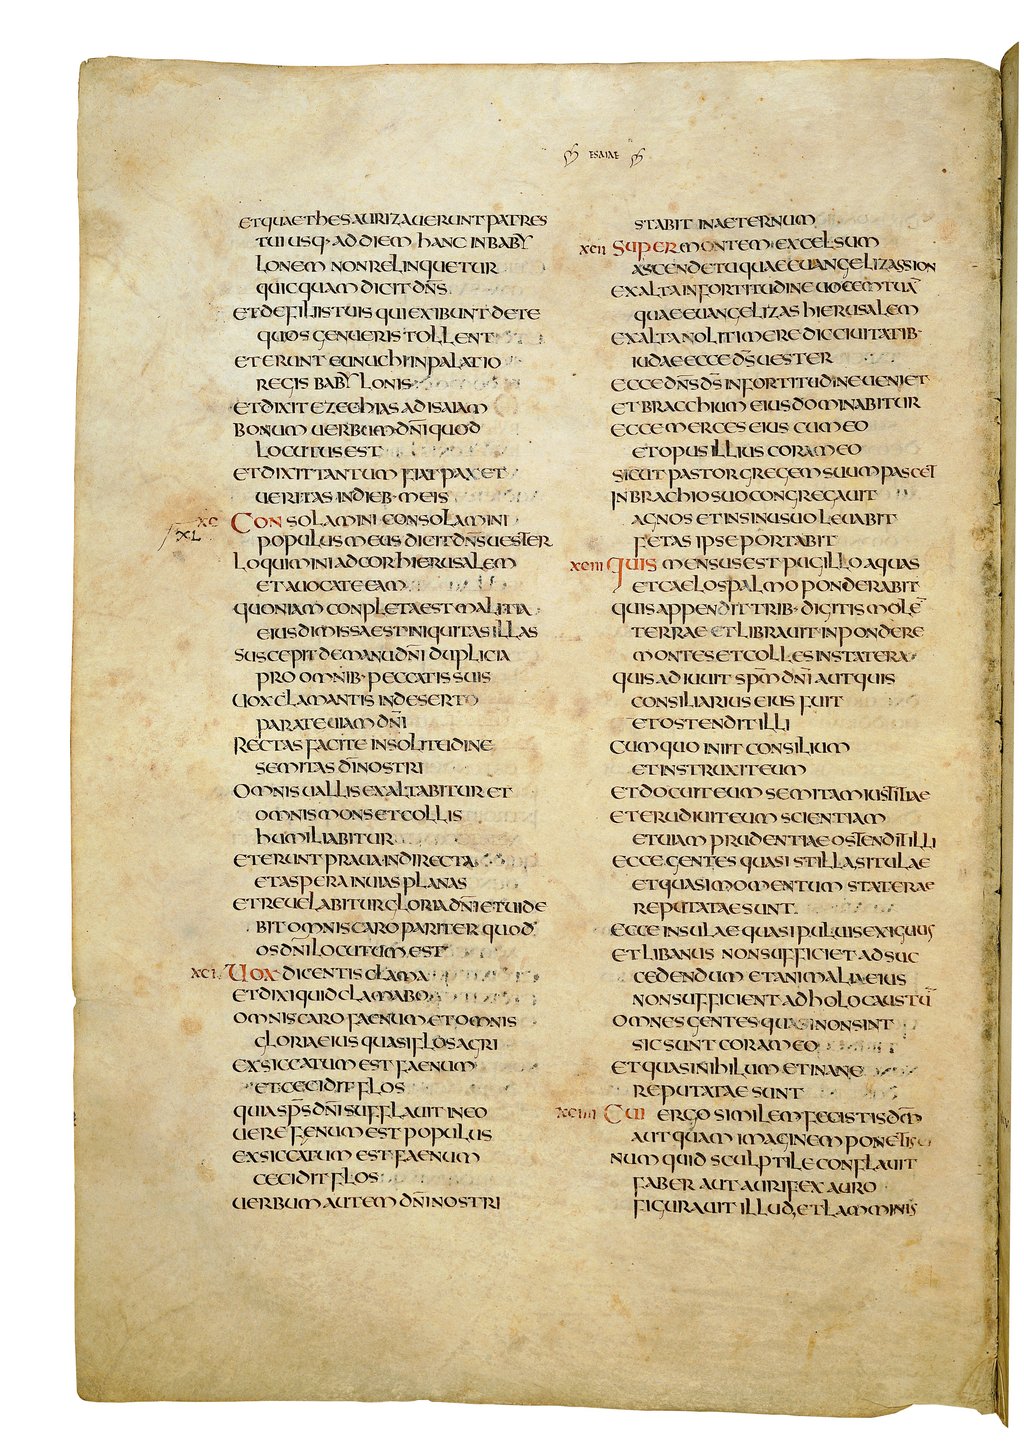 ESAIAE
ETQUAETHESAURIZAUERUNTPATRES
TUI USQ· AD DIEM HANC IN BABY
LONEM NONRELINQUETUR
QUICQUAM DICIT DN̄S
ETDEFILIISTUIS QUI EXIBUNT DE TE
QUOS GENUERIS TOLLENT
ET ERUNT EUNUCHI IN PALATIO
REGIS BABYLONIS
ET DIXIT EZECHIAS AD ISAIAM
BONUM UERBUM DN̄I QUOD
LOCUTUS EST
ET DIXIT TANTUM FIAT PAX ET
UERITAS IN DIEB· MEIS
XC CONSOLAMINI CONSOLAMINI
XL POPULUS MEUS DICIT DN̄S UESTER
LOQUIMINI AD COR HIERUSALEM
ET AUOCATE EAM
QUONIAM CONPLETA EST MALITIA
EIUS DIMISSA EST INIQUITAS ILLAS
SUSCEPIT DE MANU DN̄I DUPLICIA
PRO OMNIB· PECCATIS SUIS
UOX CLAMANTIS IN DESERTO
PARATE UIAM DN̄I
RECTAS FACITE IN SOLITUDINE
SEMITAS DĪ NOSTRI
OMNIS UALLIS EXALTABITUR ET
OMNIS MONS ET COLLIS
HUMILIABITUR
ET ERUNT PRAUA IN DIRECTA
ET ASPERA IN UIAS PLANAS
ET REUELABITUR GLORIA DN̄I ET UIDE
BIT OMNIS CARO PARITER QUOD
OS DN̄I LOCUTUM EST
XCI UOX DICENTIS CLAMA
ET DIXI QUID CLAMABO
OMNIS CARO FAENUM ET OMNIS
GLORIA EIUS QUASI FLOS AGRI
EXSICCATUM EST FAENUM
ET CECIDIT FLOS
QUIA SPS̄ DN̄I SUFFLAUIT IN EO
UERE FENUM EST POPULUS
EXSICCATUM EST FAENUM
CECIDIT FLOS
UERBUM AUTEM DN̄I NOSTRI
STABIT IN AETERNUM
XCII SUPER MONTEM EXCELSUM
ASCENDE TU QUAE EUANGELIZAS SION
EXALTA IN FORTITUDINE UOCEM TUĀ
QUAE EUANGELIZAS HIERUSALEM
EXALTA NOLI TIMERE DIC CIUITATIB·
IUDAE ECCE DS̄ UESTER
ECCE DN̄S DS̄ IN FORTITUDINE UENIET
ET BRACCHIUM EIUS DOMINABITUR
ECCE MERCES EIUS CUM EO
ET OPUS ILLIUS CORAM EO
SICUT PASTOR GREGEM SUUM PASCET
IN BRACHIO SUO CONGREGAUIT
AGNOS ET IN SINU SUO LEUABIT
FETAS IPSE PORTABIT
XCIII QUIS MENSUS EST PUGILLO AQUAS
ET CAELOS PALMO PONDERABIT
QUIS APPENDIT TRIB· DIGITIS MOLĒ
TERRAE ET LIBRAUIT IN PONDERE
MONTES ET COLLES IN STATERA
QUIS ADIUUIT SPM̄ DN̄I AUT QUIS
CONSILIARIUS EIUS FUIT
ET OSTENDIT ILLI
CUM QUO INIIT CONSILIUM
ET INSTRUXIT EUM
ET DOCUIT EUM SEMITAM IUSTITIAE
ET ERUDIUIT EUM SCIENTIAM
ET UIAM PRUDENTIAE OSTENDIT ILLI
ECCE GENTES QUASI STILLA SITULAE
ET QUASI MOMENTUM STATERAE
REPUTATAE SUNT
ECCE INSULAE QUASI PULUIS EXIGUUS
ET LIBANUS NON SUFFICIET AD SUC
CEDENDUM ET ANIMALIA EIUS
NON SUFFICIENT AD HOLOCAUSTŪ
OMNES GENTES QUASI NON SINT
SIC SUNT CORAM EO
ET QUASI NIHILUM ET INANE
REPUTATAE SUNT
XCIIII CUI ERGO SIMILEM FECISTIS DM̄
AUT QUAM IMAGINEM PONETIS
NUMQUID SCULPTILE CONFLAUIT
FABER AUT AURIFEX AURO
FIGURAUIT ILLUD, ET LAMMINIS